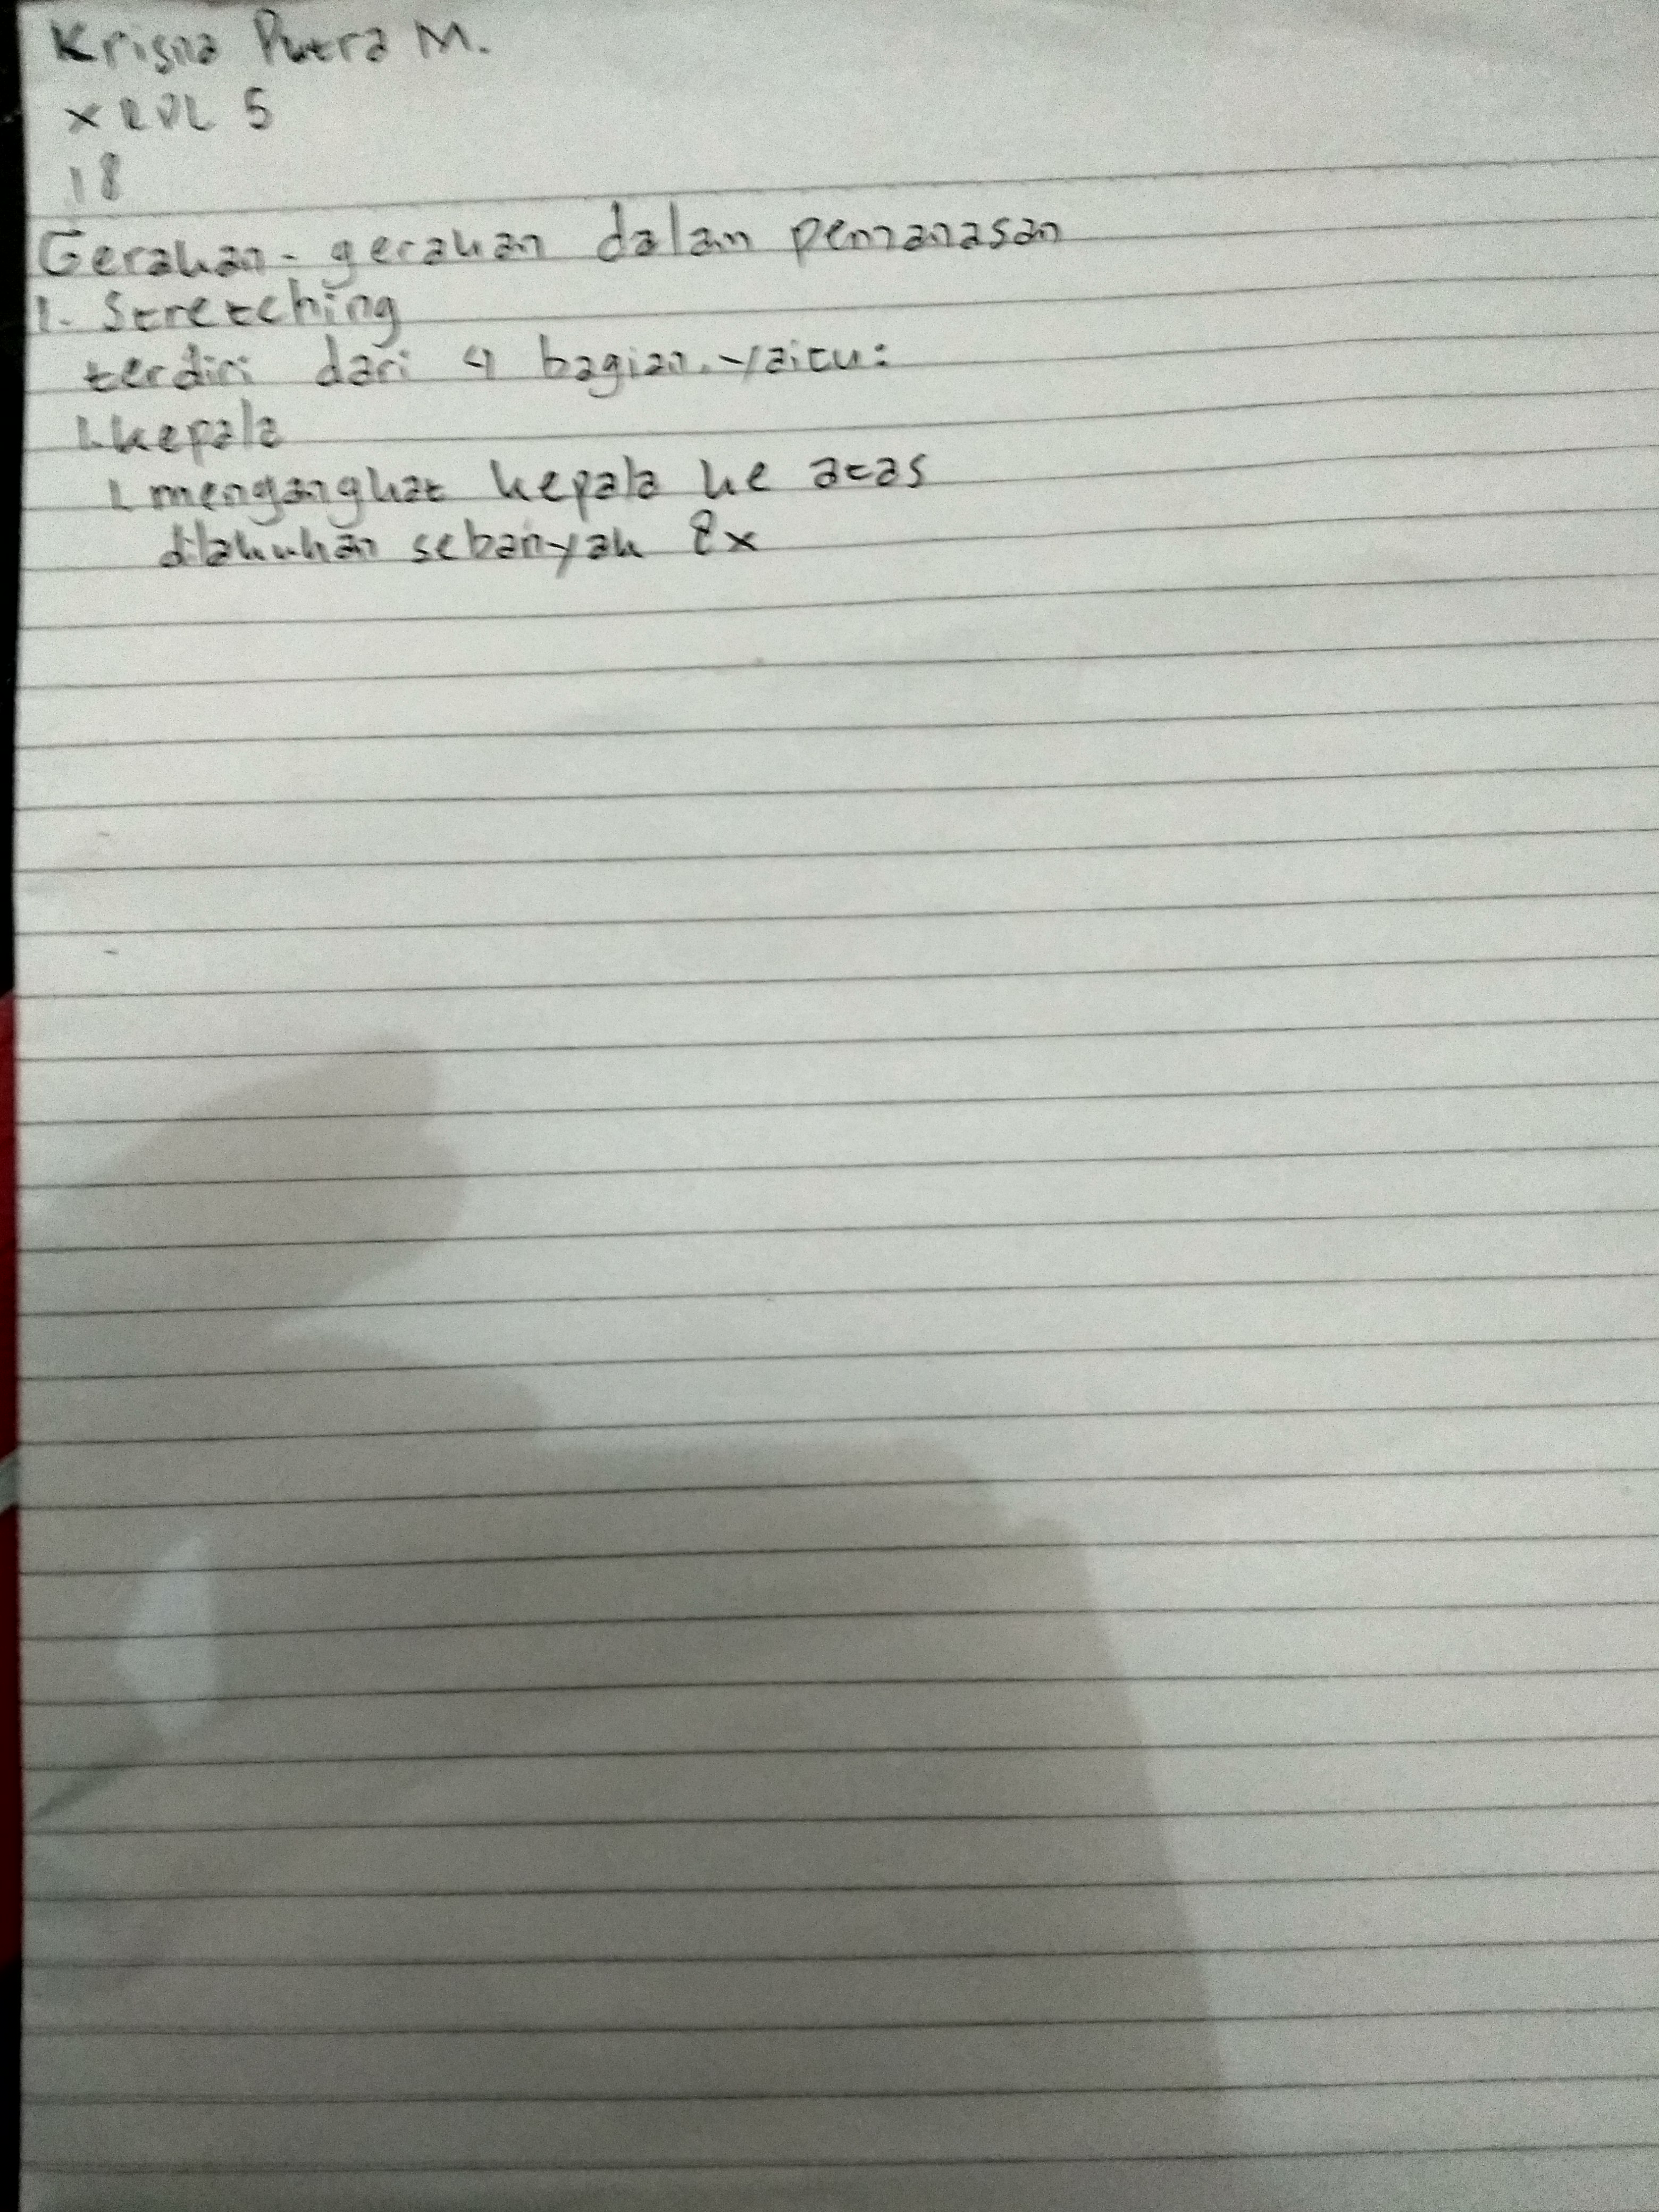 Krisna Putra M.
X RPL 5
18
Gerakan-gerakan dalam pemanasan
1. Stretching
terdiri dari 4 bagian. Yaitu:
1. kepala
1 mengangkat kepala ke atas
dilakukan sebanyak 8x